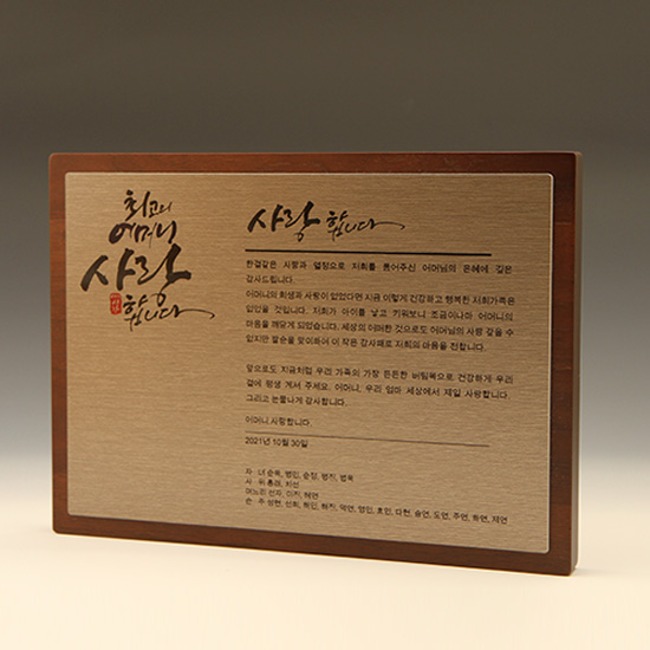 최고의
어머니
사랑
합니다
사랑합니다
한결같은 사랑과 열정으로 저희를 품어주신 어머님의 은혜에 깊은
감사드립니다.
어머니의 희생과 사랑이 없었다면 지금 이렇게 건강하고 행복한 저희가족은
없었을 것입니다. 저희가 아이를 낳고 키워보니 조금이나마 어머니의
마음을 깨닫게 되었습니다. 세상의 어떠한 것으로도 어머님의 사랑 갚을 수
없지만 팔순을 맞이하여 이 작은 감사패로 저희의 마음을 전합니다.
앞으로도 지금처럼 우리 가족의 가장 든든한 버팀목으로 건강하게 우리
곁에 평생 계셔 주세요. 어머니, 우리 엄마 세상에서 제일 사랑합니다.
그리고 눈물나게 감사합니다.
어머니 사랑합니다.
2021년 10월 30일
자 녀 순옥, 병민, 순정, 병진, 병욱
사 위
며느리 선자, 미진, 혜연
손 주 성현, 선희, 혁인, 해진, 덕연, 영민, 효민, 다현, 승연, 도연, 주연, 하연, 재연